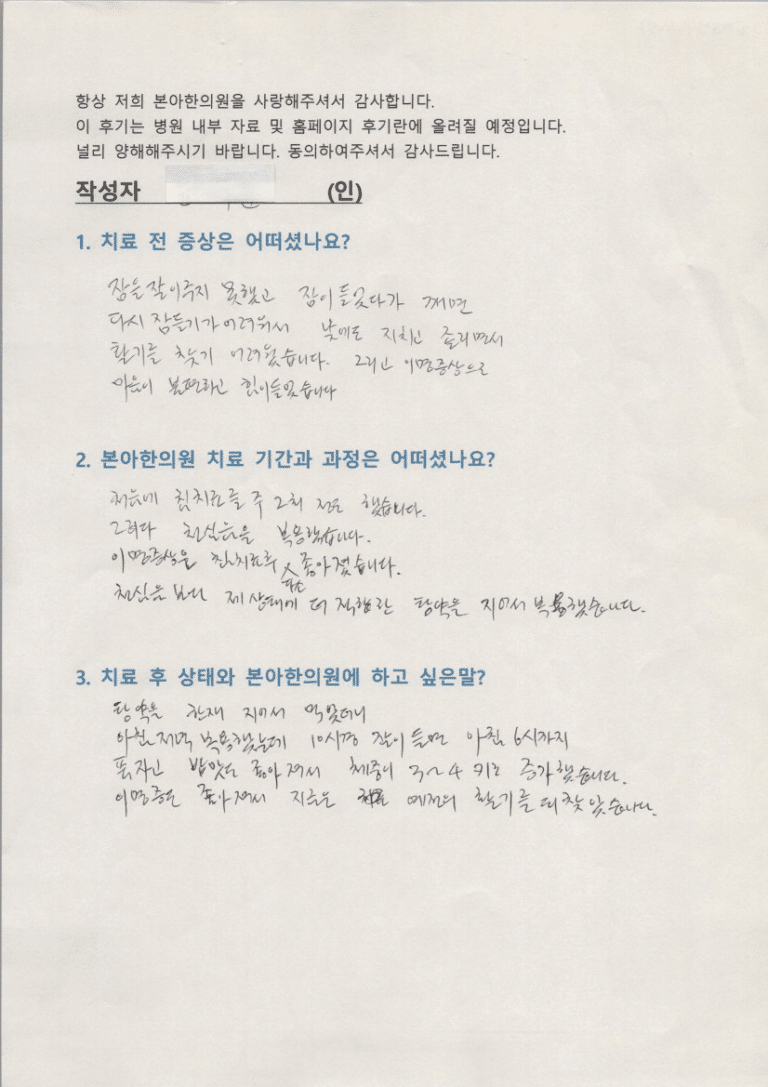 항상 저희 본아한의원을 사랑해주셔서 감사합니다.
이 후기는 병원 내부 자료 및 홈페이지 후기란에 올려질 예정입니다.
널리 양해해주시기 바랍니다. 동의하여주셔서 감사드립니다.
작성자 (인)
1. 치료 전 증상은 어떠셨나요?
잠을 잘 이루지 못했고 잠이 들었다가 깨면
다시 잠들기가 어려워서 낮에도 지치고 졸리면서
활기를 찾기 어려웠습니다. 그리고 이명증상으로
마음이 불편하고 힘이들었습니다
2. 본아한의원 치료 기간과 과정은 어떠셨나요?
처음에 침치료를 주 2회 정도 했습니다.
그러다 천심음을 복용했습니다.
이명증상은 침치료후 다소 좋아졌습니다.
천심음 보다 제 상태에 더 적합한 탕약을 지어서 복용했습니다.
3. 치료 후 상태와 본아한의원에 하고 싶은말?
탕약을 한재 지어서 먹었더니
아침, 저녁 복용했는데 10시경 잠이 들면 아침 6시까지
푹자고 밥맛도 좋아져서 체중이 3~4 키로 증가했습니다.
이명증도 좋아져서 지금은 예전의 활기를 되찾았습니다.